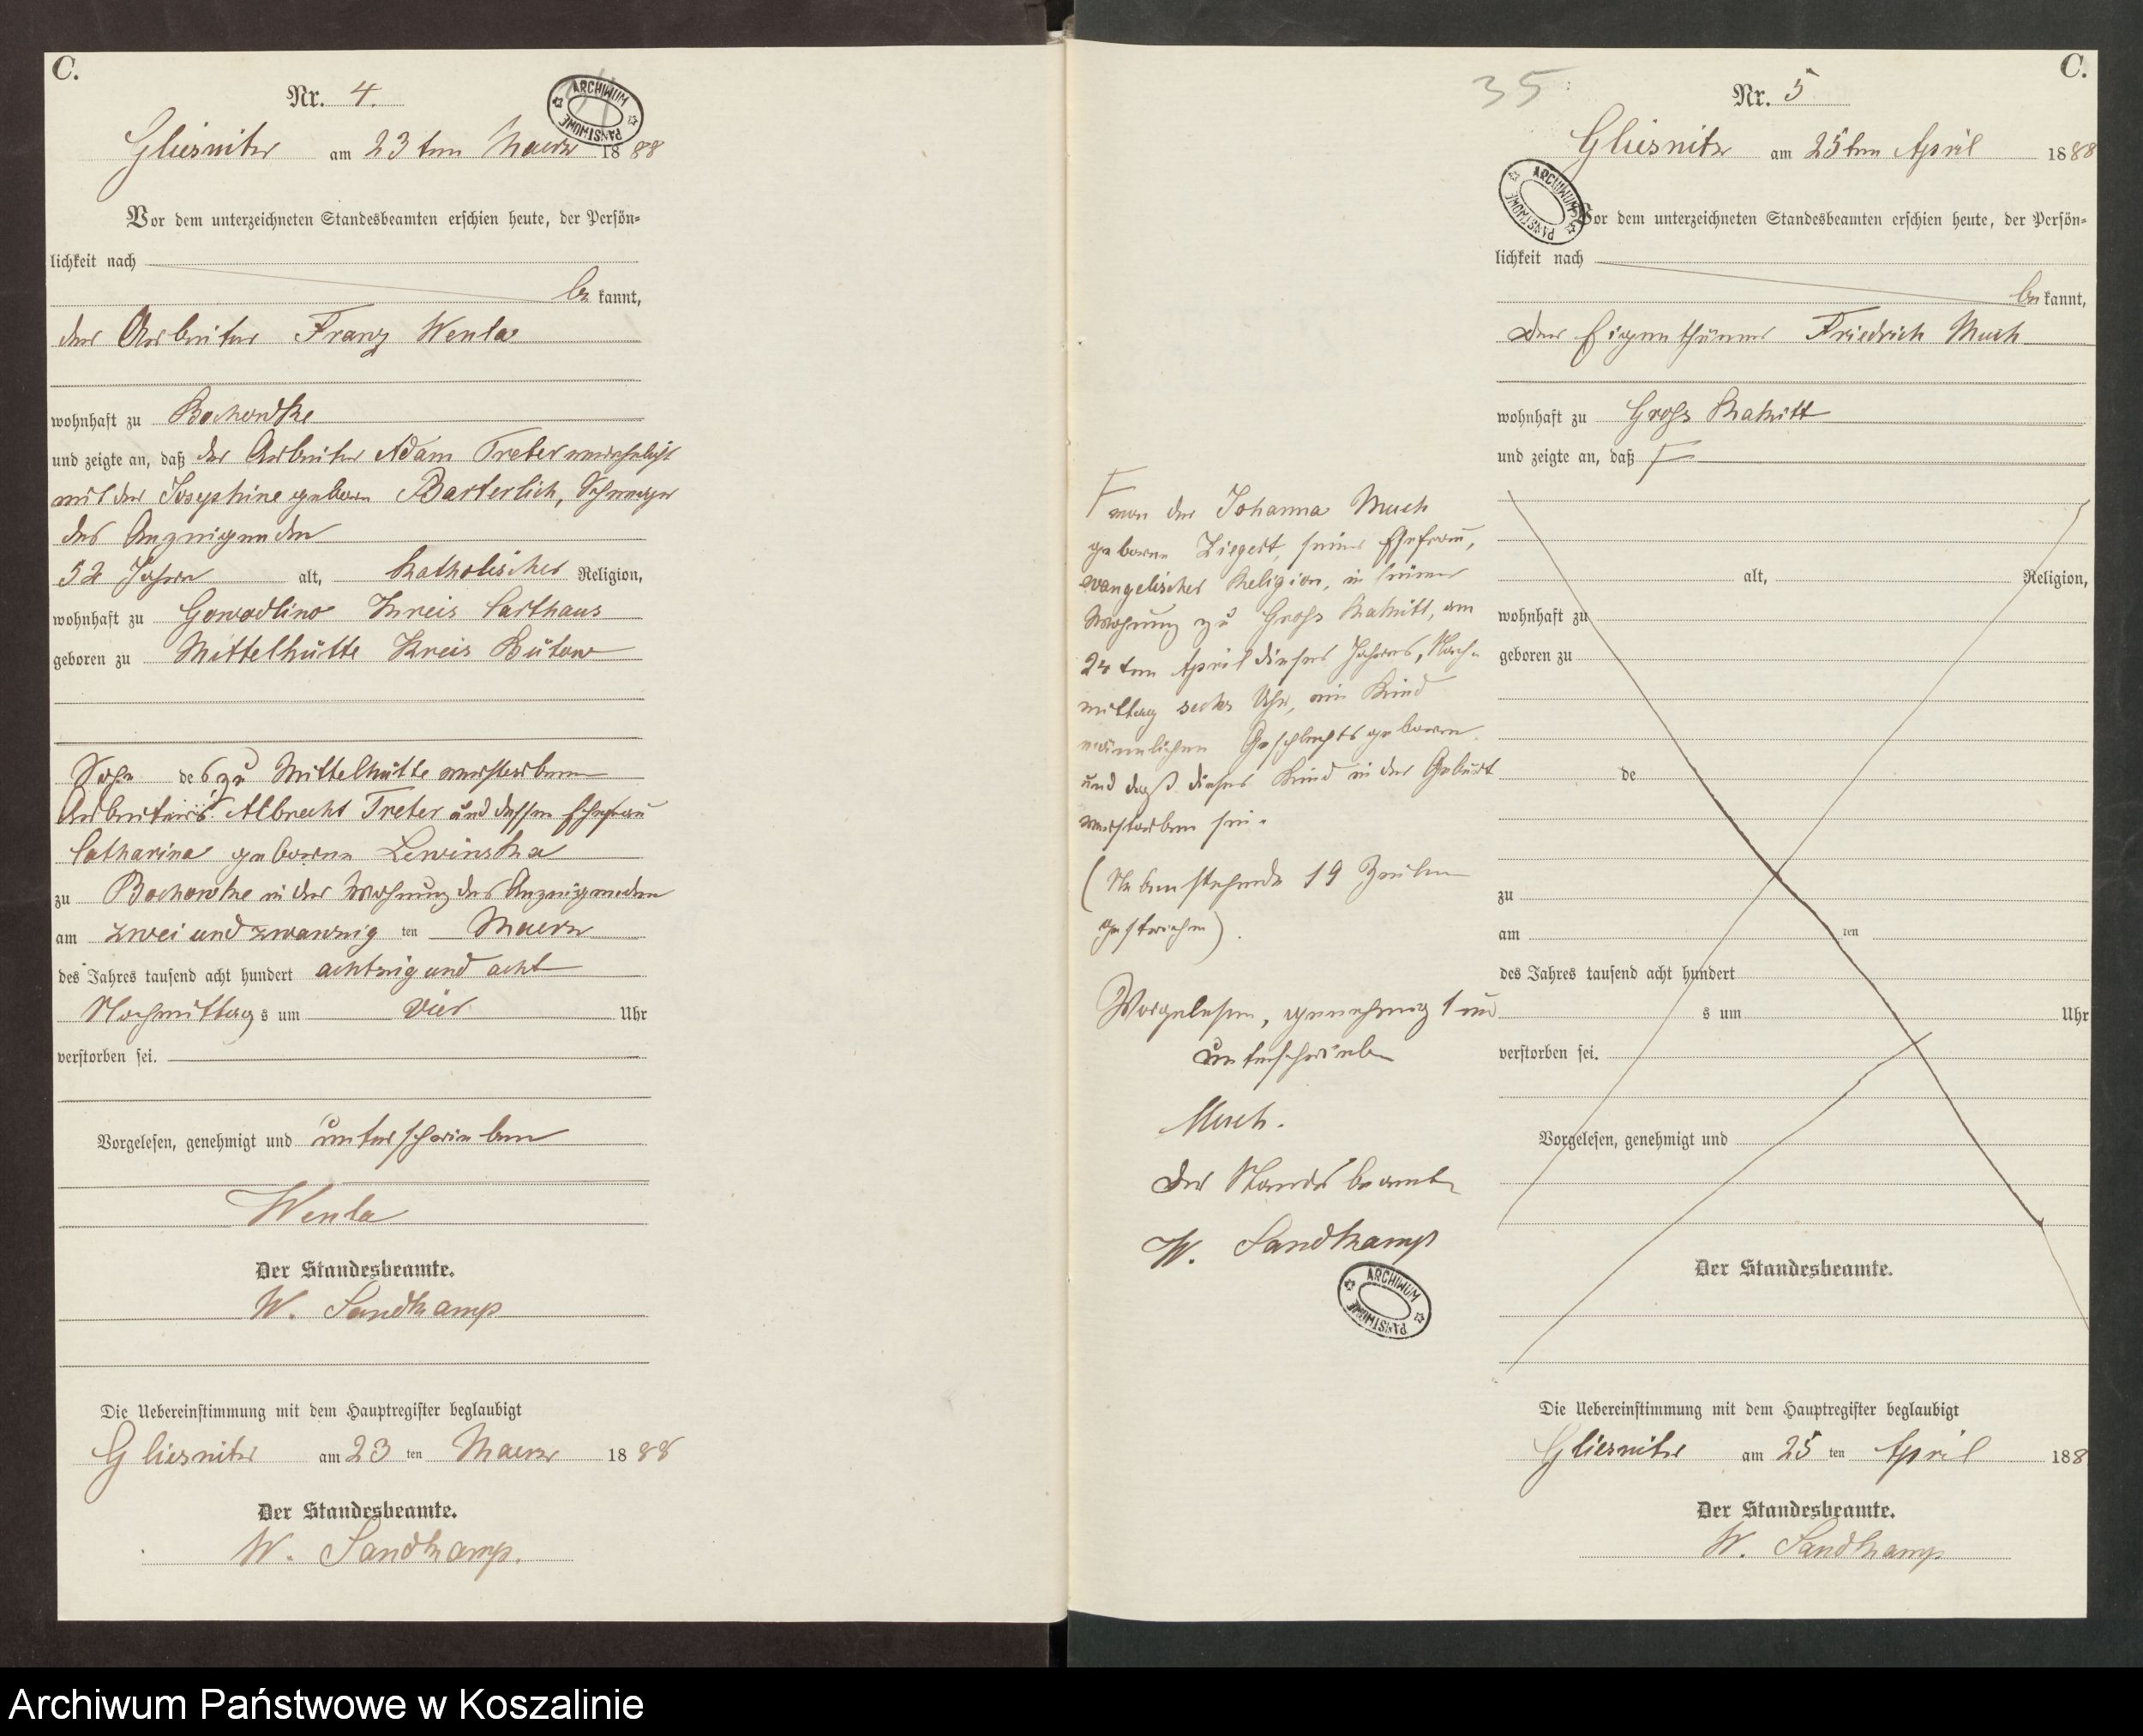 C.
Nr. 4.
ARCHIWUM PAŃSTWOWE
Gliesnitz am 23ten Maerz 1888
Vor dem unterzeichneten Standesbeamten erschien heute, der Persön-
lichkeit nach
be kannt,
der Arbeiter Franz Wenta
wohnhaft zu Bochowtke
und zeigte an, daß der Arbeiter Adam Treter verehelicht
mit der Josephine geborne Barterlich, Schwager
des Anzeigenden
52 Jahre alt, katholischer Religion,
wohnhaft zu Gowodlino Kreis Carthaus
geboren zu Mittelhütte Kreis Bütow
Sohn des zu Mittelhütte verstorbenen
Arbeiters Albrecht Treter und dessen Ehefrau
Catharina geborne Lewinska
zu Bochowke in der Wohnung des Anzeigenden
am zwei und zwanzig ten Maerz
des Jahres tausend acht hundert achtzig und acht
Nachmittag s um vier Uhr
verstorben sei.
Vorgelesen, genehmigt und unterschrieben
Wenta
Der Standesbeamte.
W. Sandkamp
Die Uebereinstimmung mit dem Hauptregister beglaubigt
Gliesnitz am 23 ten Maerz 1888
Der Standesbeamte.
W. Sandkamp.
C.
35
Nr. 5
Gliesnitz am 25ten April 1888
ARCHIWUM PAŃSTWOWE
Vor dem unterzeichneten Standesbeamten erschien heute, der Persön-
lichkeit nach
be kannt,
Der Eigenthümer Friedrich Much
wohnhaft zu Groß Rakitt
und zeigte an, daß F
F von der Johanna Much
geborne Ziegert, seiner Ehefrau,
evangelischer Religion, in seiner
Wohnung zu Groß Rakitt, am
24ten April dieses Jahres, Nach-
mittag sechs Uhr, ein Kind
männlichen Geschlechts geboren
und daß dieses Kind in der Geburt
verstorben sei.
(Nebenstehende 19 Zeilen
gestrichen).
Vorgelesen, genehmigt und
unterschrieben
Much.
Der Standesbeamte
W. Sandkamp
ARCHIWUM PAŃSTWOWE
alt, Religion,
wohnhaft zu
geboren zu
de
zu
am ten
des Jahres tausend acht hundert
s um Uhr
verstorben sei.
Vorgelesen, genehmigt und
Der Standesbeamte.
Die Uebereinstimmung mit dem Hauptregister beglaubigt
Gliesnitz am 25 ten April 188
Der Standesbeamte.
W. Sandkamp
Archiwum Państwowe w Koszalinie